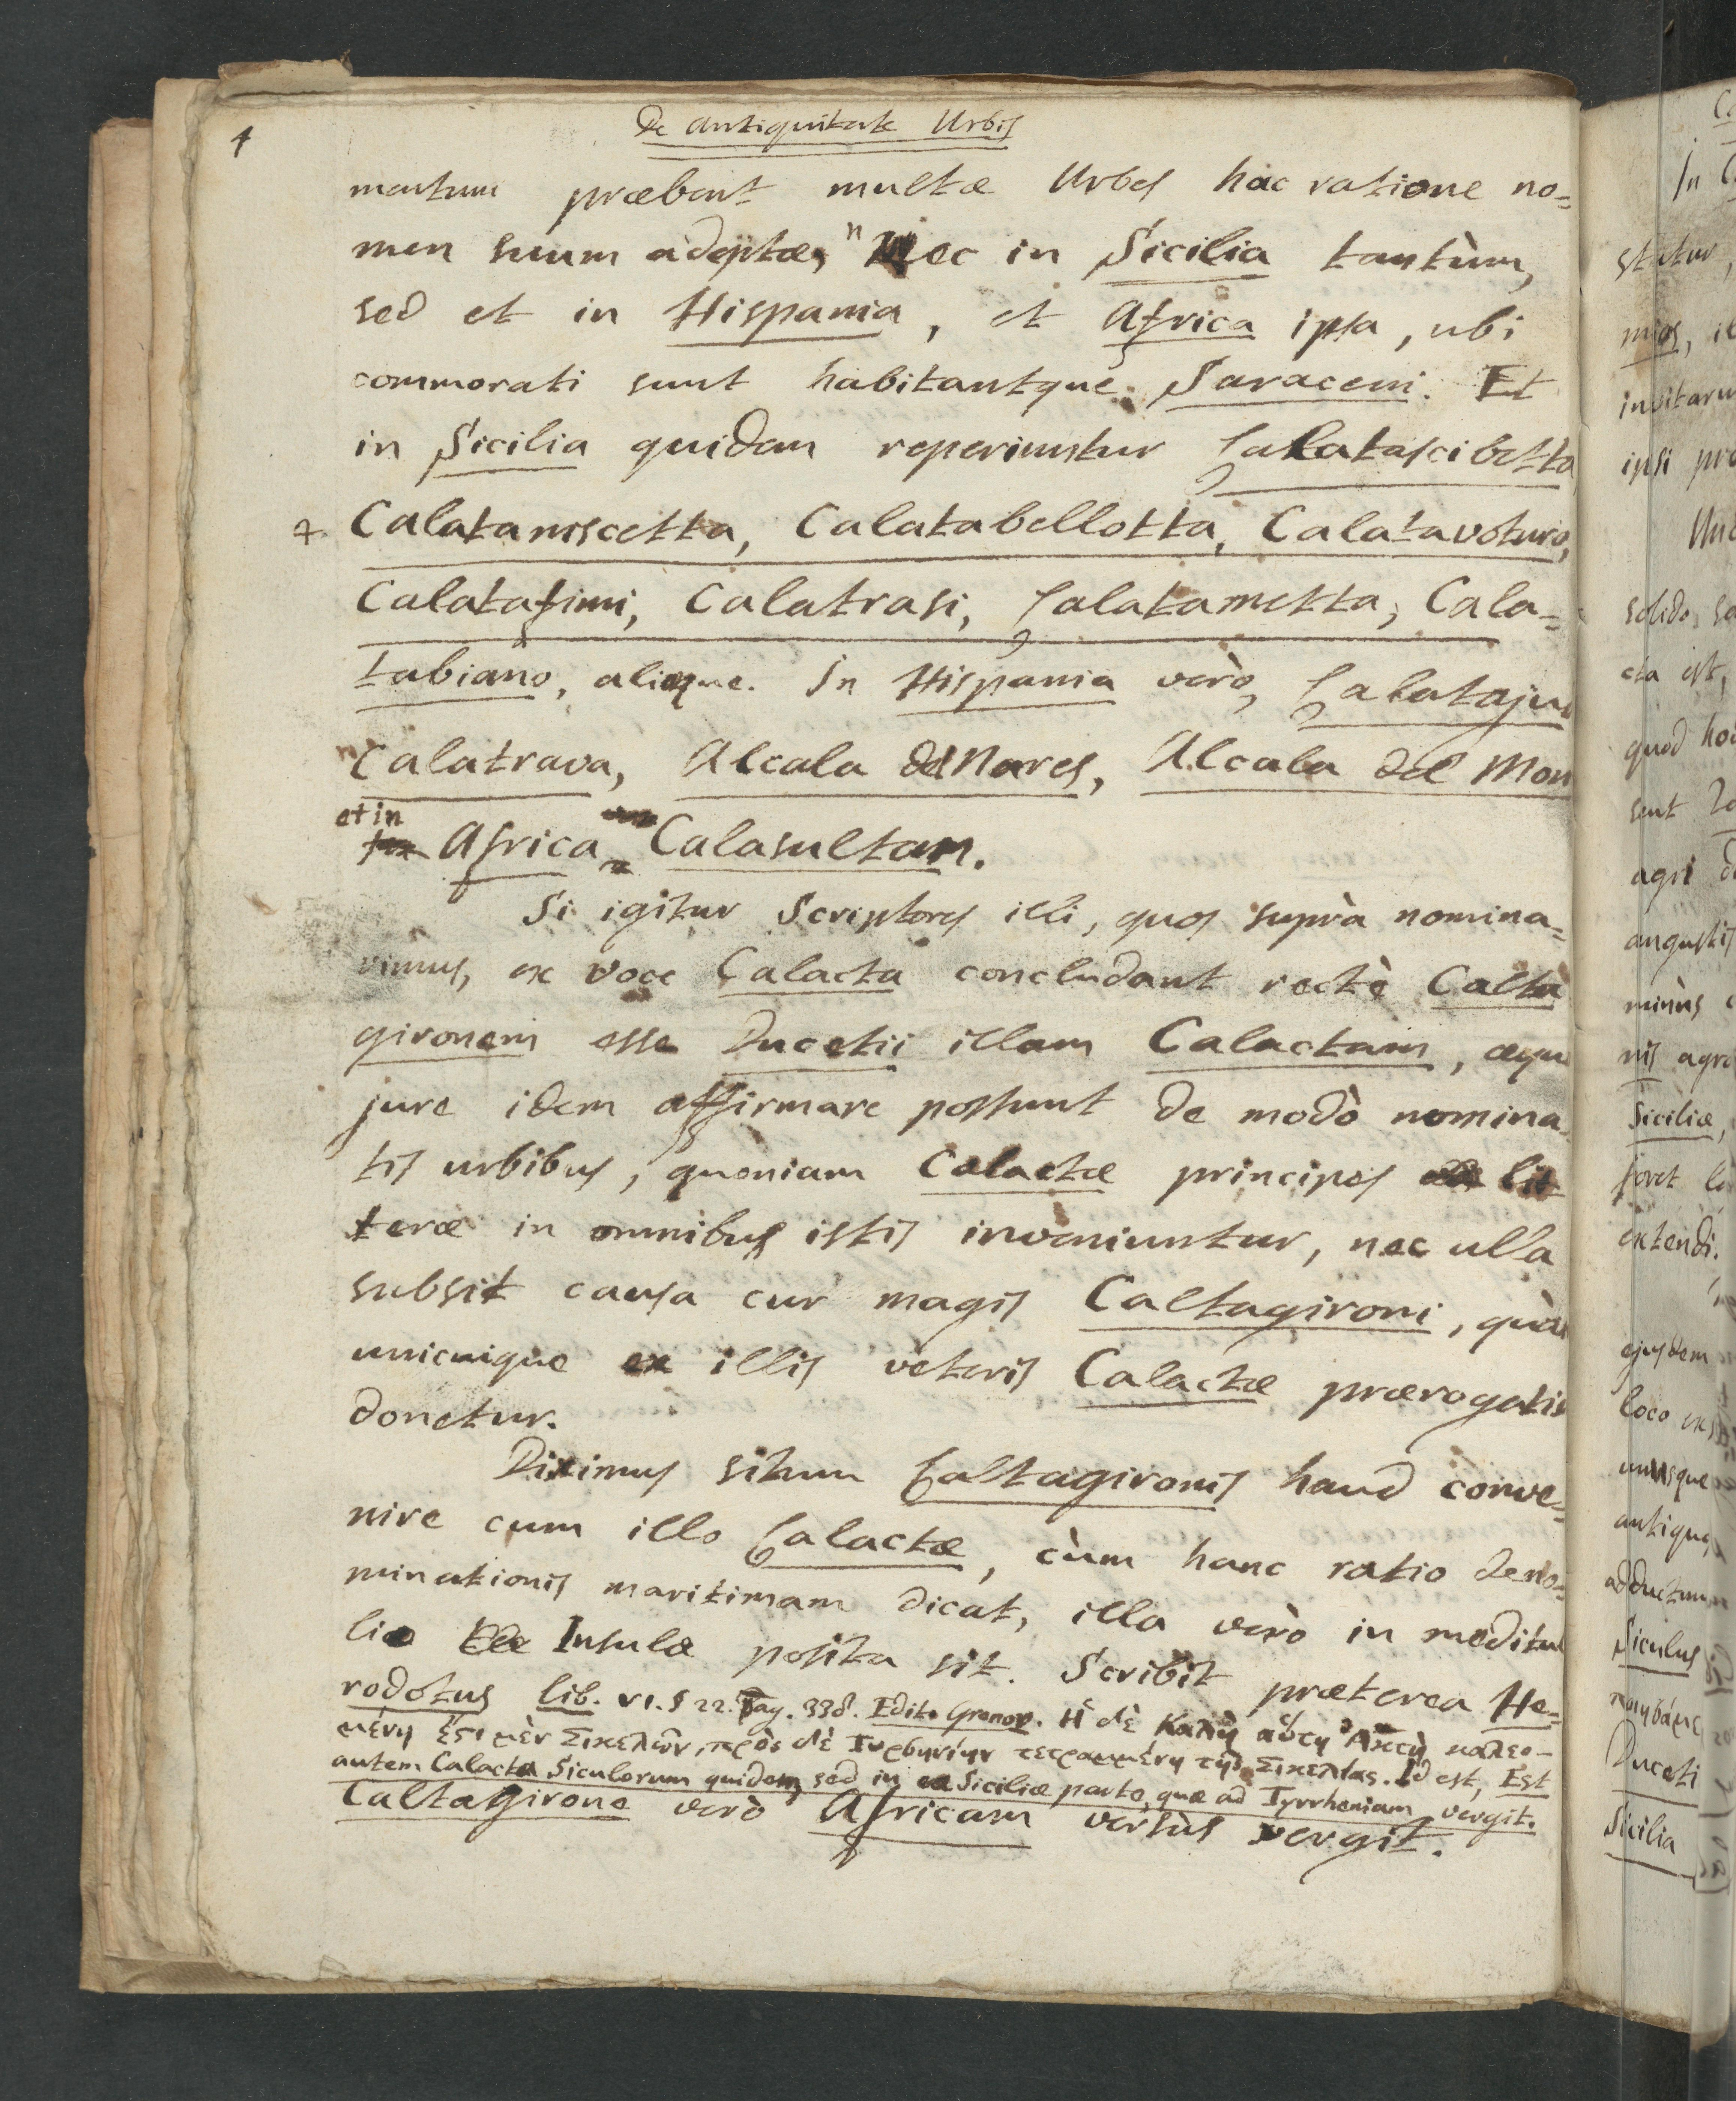 4
De Antiquitate Urbis
mentum præbent multæ Urbes hac ratione no=
men suum adeptæ, nec in Sicilia tantùm,
sed et in Hispania, et Africa ipsa, ubi
commorati sunt habitantque Saraceni. Et
in Sicilia quidem reperiuntur Calatascibetta
Calataniscetta, Calatabellotta, Calatavoturo,
Calatafimi, Calatrasi, Calatametta, Cala=
tabiano, aliæque. In Hispania verò, Calataju
Calatrava, Alcala de Nares, Alcala del Mon
et in
Africa Calasultan.
Si igitur Scriptores illi, quos suprà nomina=
vimus, ex voce Calacta concludant rectè Calta
gironem esse Ducetii illam Calactam, æquo
jure idem affirmare possunt de modò nomina
tis urbibus, quoniam Calactæ principes lit
teræ in omnibus istis inveniuntur, nec ulla
subsit causa cur magis Caltagironi, quàm
unicuique ex illis veteris Calactæ prærogativ
donetur.
Diximus situm Caltagironis haud conve=
nire cum illo Calactæ, cùm hanc ratio deno=
minationis maritimam dicat, illa verò in meditul
lio Insulæ posita sit. Scribit præterea He=
rodotus lib. VI. § 22. Pag. 338. Edit. Gronov. Ἡ δὲ Καλὴ αὕτη Ἀκτὴ καλεο-
μένη ἔστι μὲν Σικελῶν, πρὸς δὲ Τυρσηνίην τετραμμένη τῆς Σικελίας. Id est, Est
autem Calacta Siculorum quidem, sed in ea Siciliæ parte, quæ ad Tyrrheniam vergit.
Caltagirone verò Africam versùs vergit.